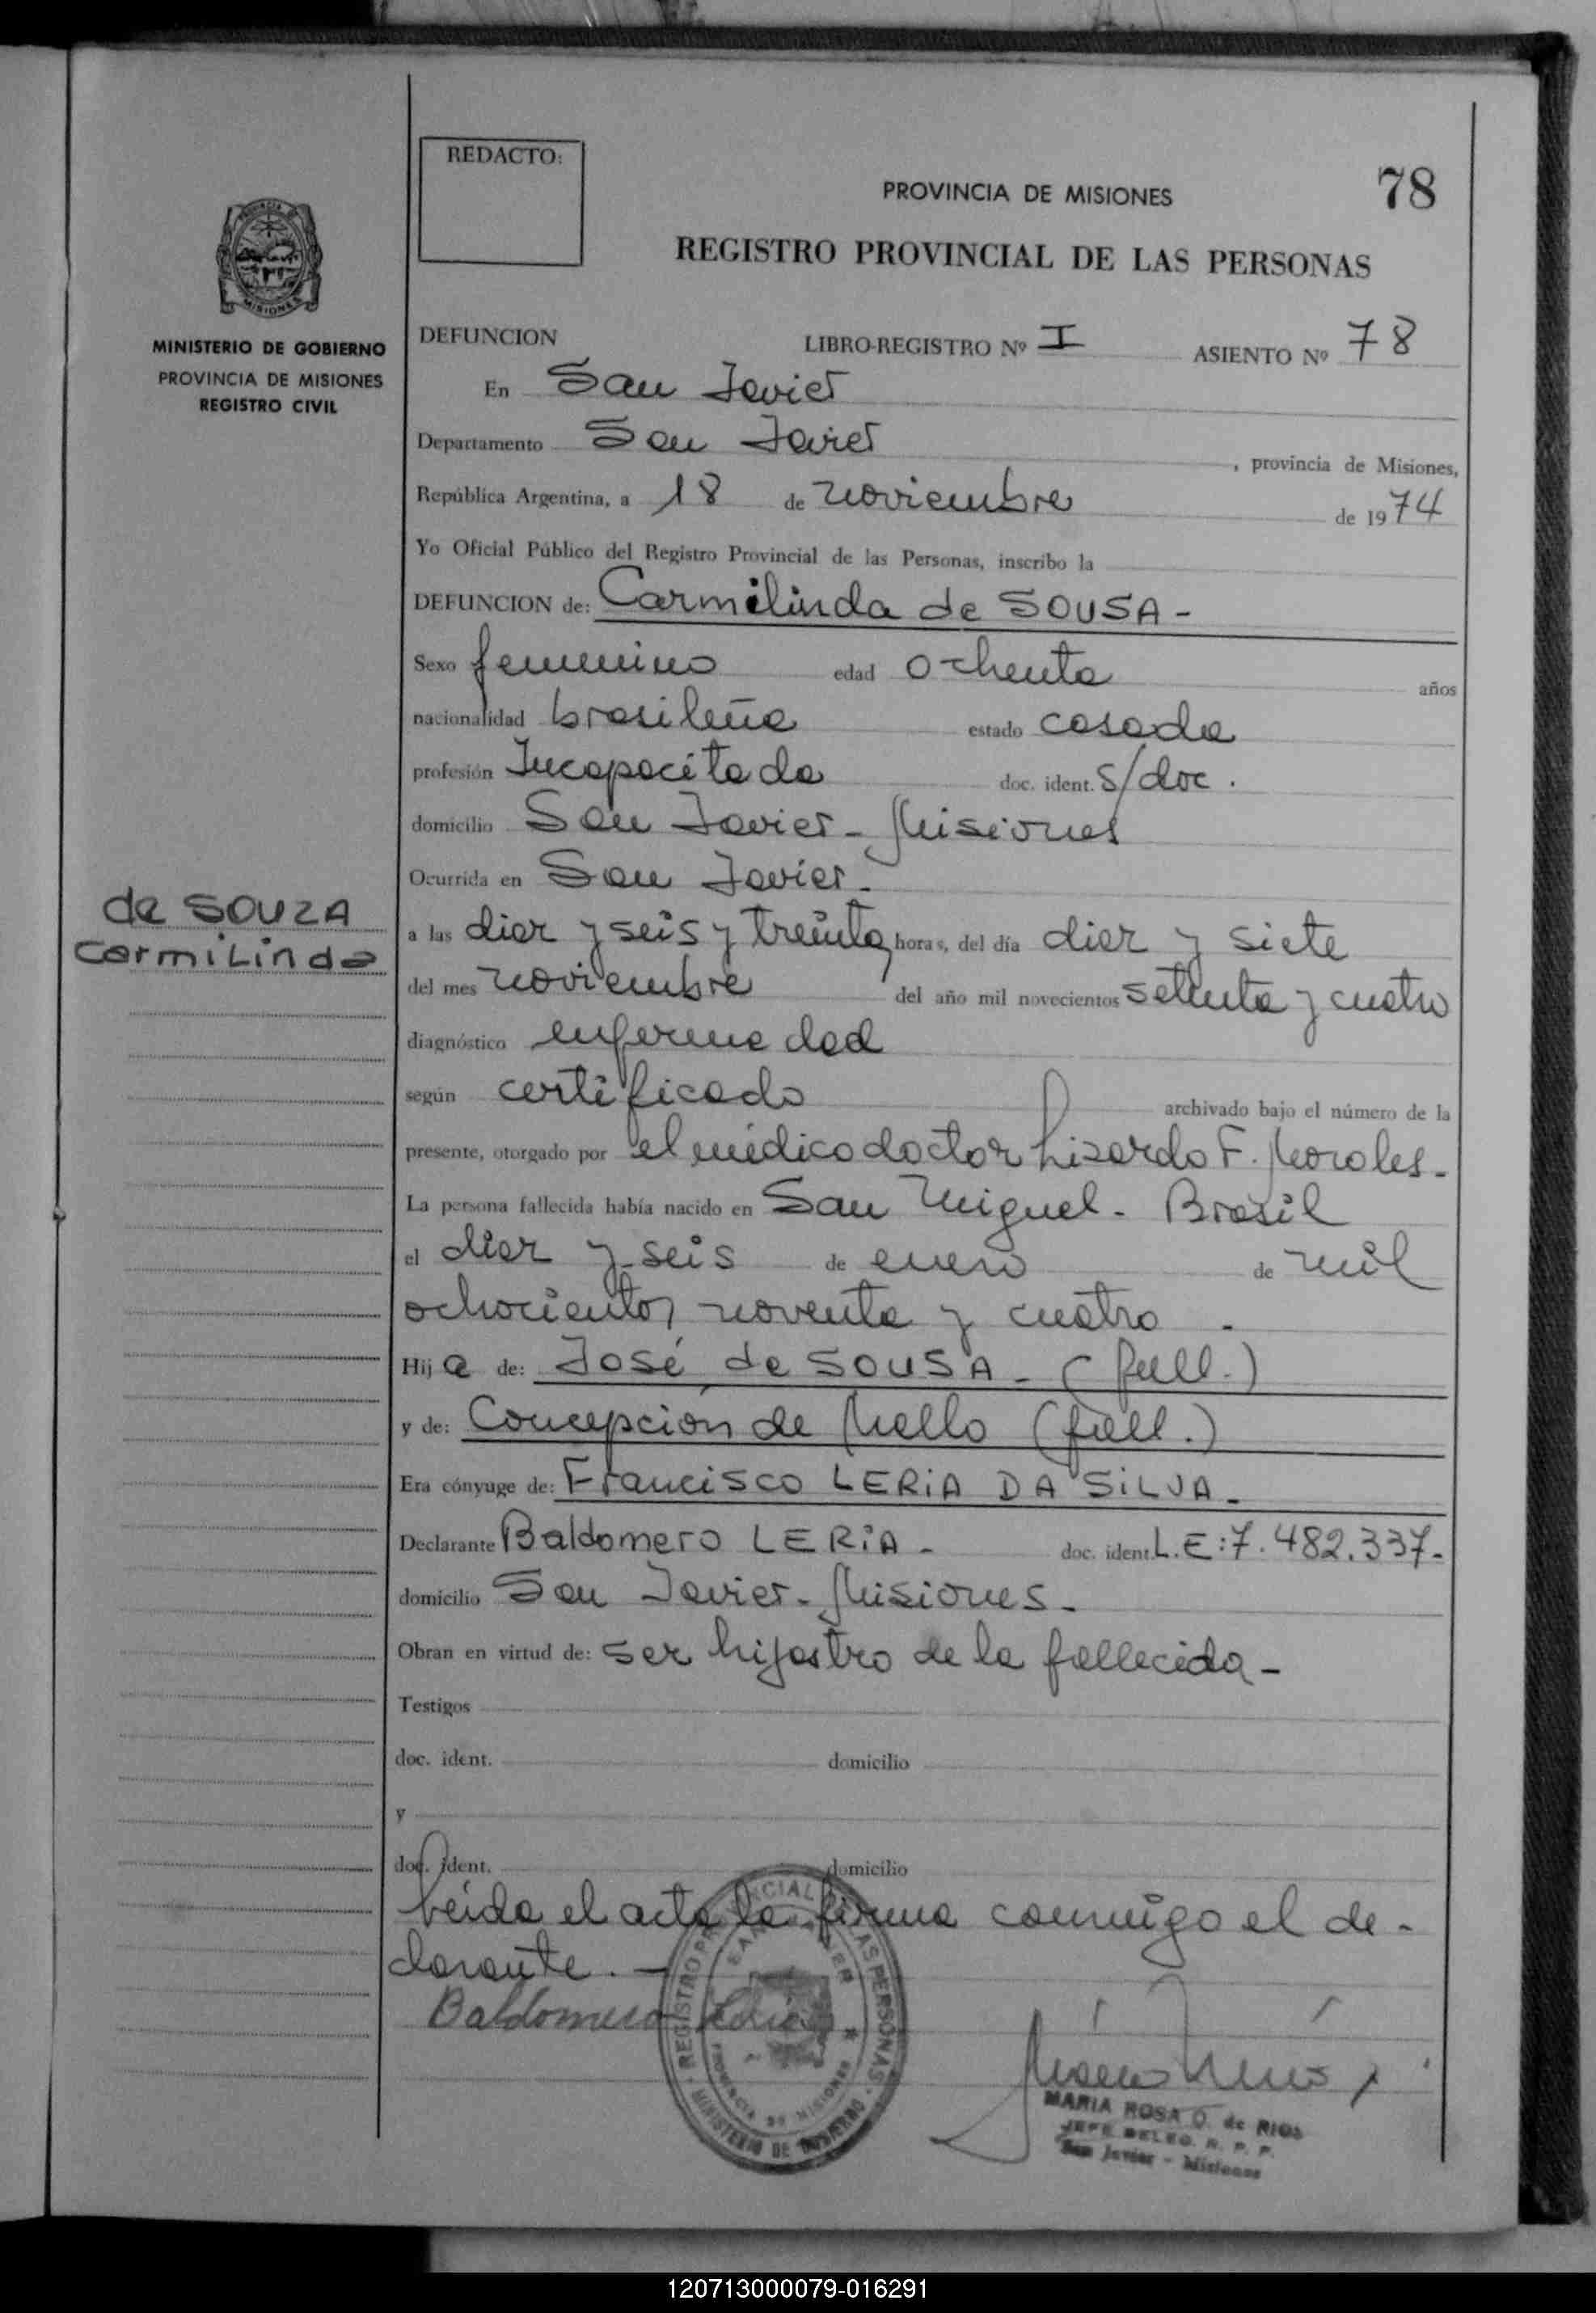 REDACTO:
PROVINCIA DE MISIONES
78
REGISTRO PROVINCIAL DE LAS PERSONAS
MINISTERIO DE GOBIERNO
PROVINCIA DE MISIONES
REGISTRO CIVIL
DEFUNCION LIBRO-REGISTRO Nº I ASIENTO Nº 78
En San Javier
Departamento San Javier, provincia de Misiones,
República Argentina, a 18 de noviembre de 1974
Yo Oficial Público del Registro Provincial de las Personas, inscribo la
DEFUNCION de: Carmilinda de SOUSA -
Sexo femenino edad ochenta años
nacionalidad brasileña estado casada
profesión Incapacitada doc. ident. S/doc.
domicilio San Javier - Misiones
Ocurrida en San Javier -
de SOUZA
carmiLinda
a las diez y seis y treinta horas, del día diez y siete
del mes noviembre del año mil novecientos setenta y cuatro
diagnóstico enfermedad
según certificado archivado bajo el número de la
presente, otorgado por el médico doctor Lisardo F. Morales -
La persona fallecida había nacido en San Miguel - Brasil
el diez y seis de enero de mil
ochocientos noventa y cuatro -
Hija de: José de SOUSA - (fall.)
y de: Concepción de Mello (fall.)
Era cónyuge de: Francisco LERiA DA SiLVA -
Declarante Baldomero LERiA - doc. ident. L.E:7.482.337-
domicilio San Javier - Misiones -
Obran en virtud de: ser hijastro de la fallecida -
Testigos
doc. ident. domicilio
y
doc. ident. domicilio
Leida el acta la firma conmigo el de-
clarante. -
Baldomero Leria
REGISTRO PROVINCIAL DE LAS PERSONAS
SAN JAVIER
PROVINCIA DE MISIONES
MINISTERIO DE GOBIERNO
MARIA ROSA O. de RIOS
JEFE DELEG. R. P. P.
San Javier - Misiones
120713000079-016291